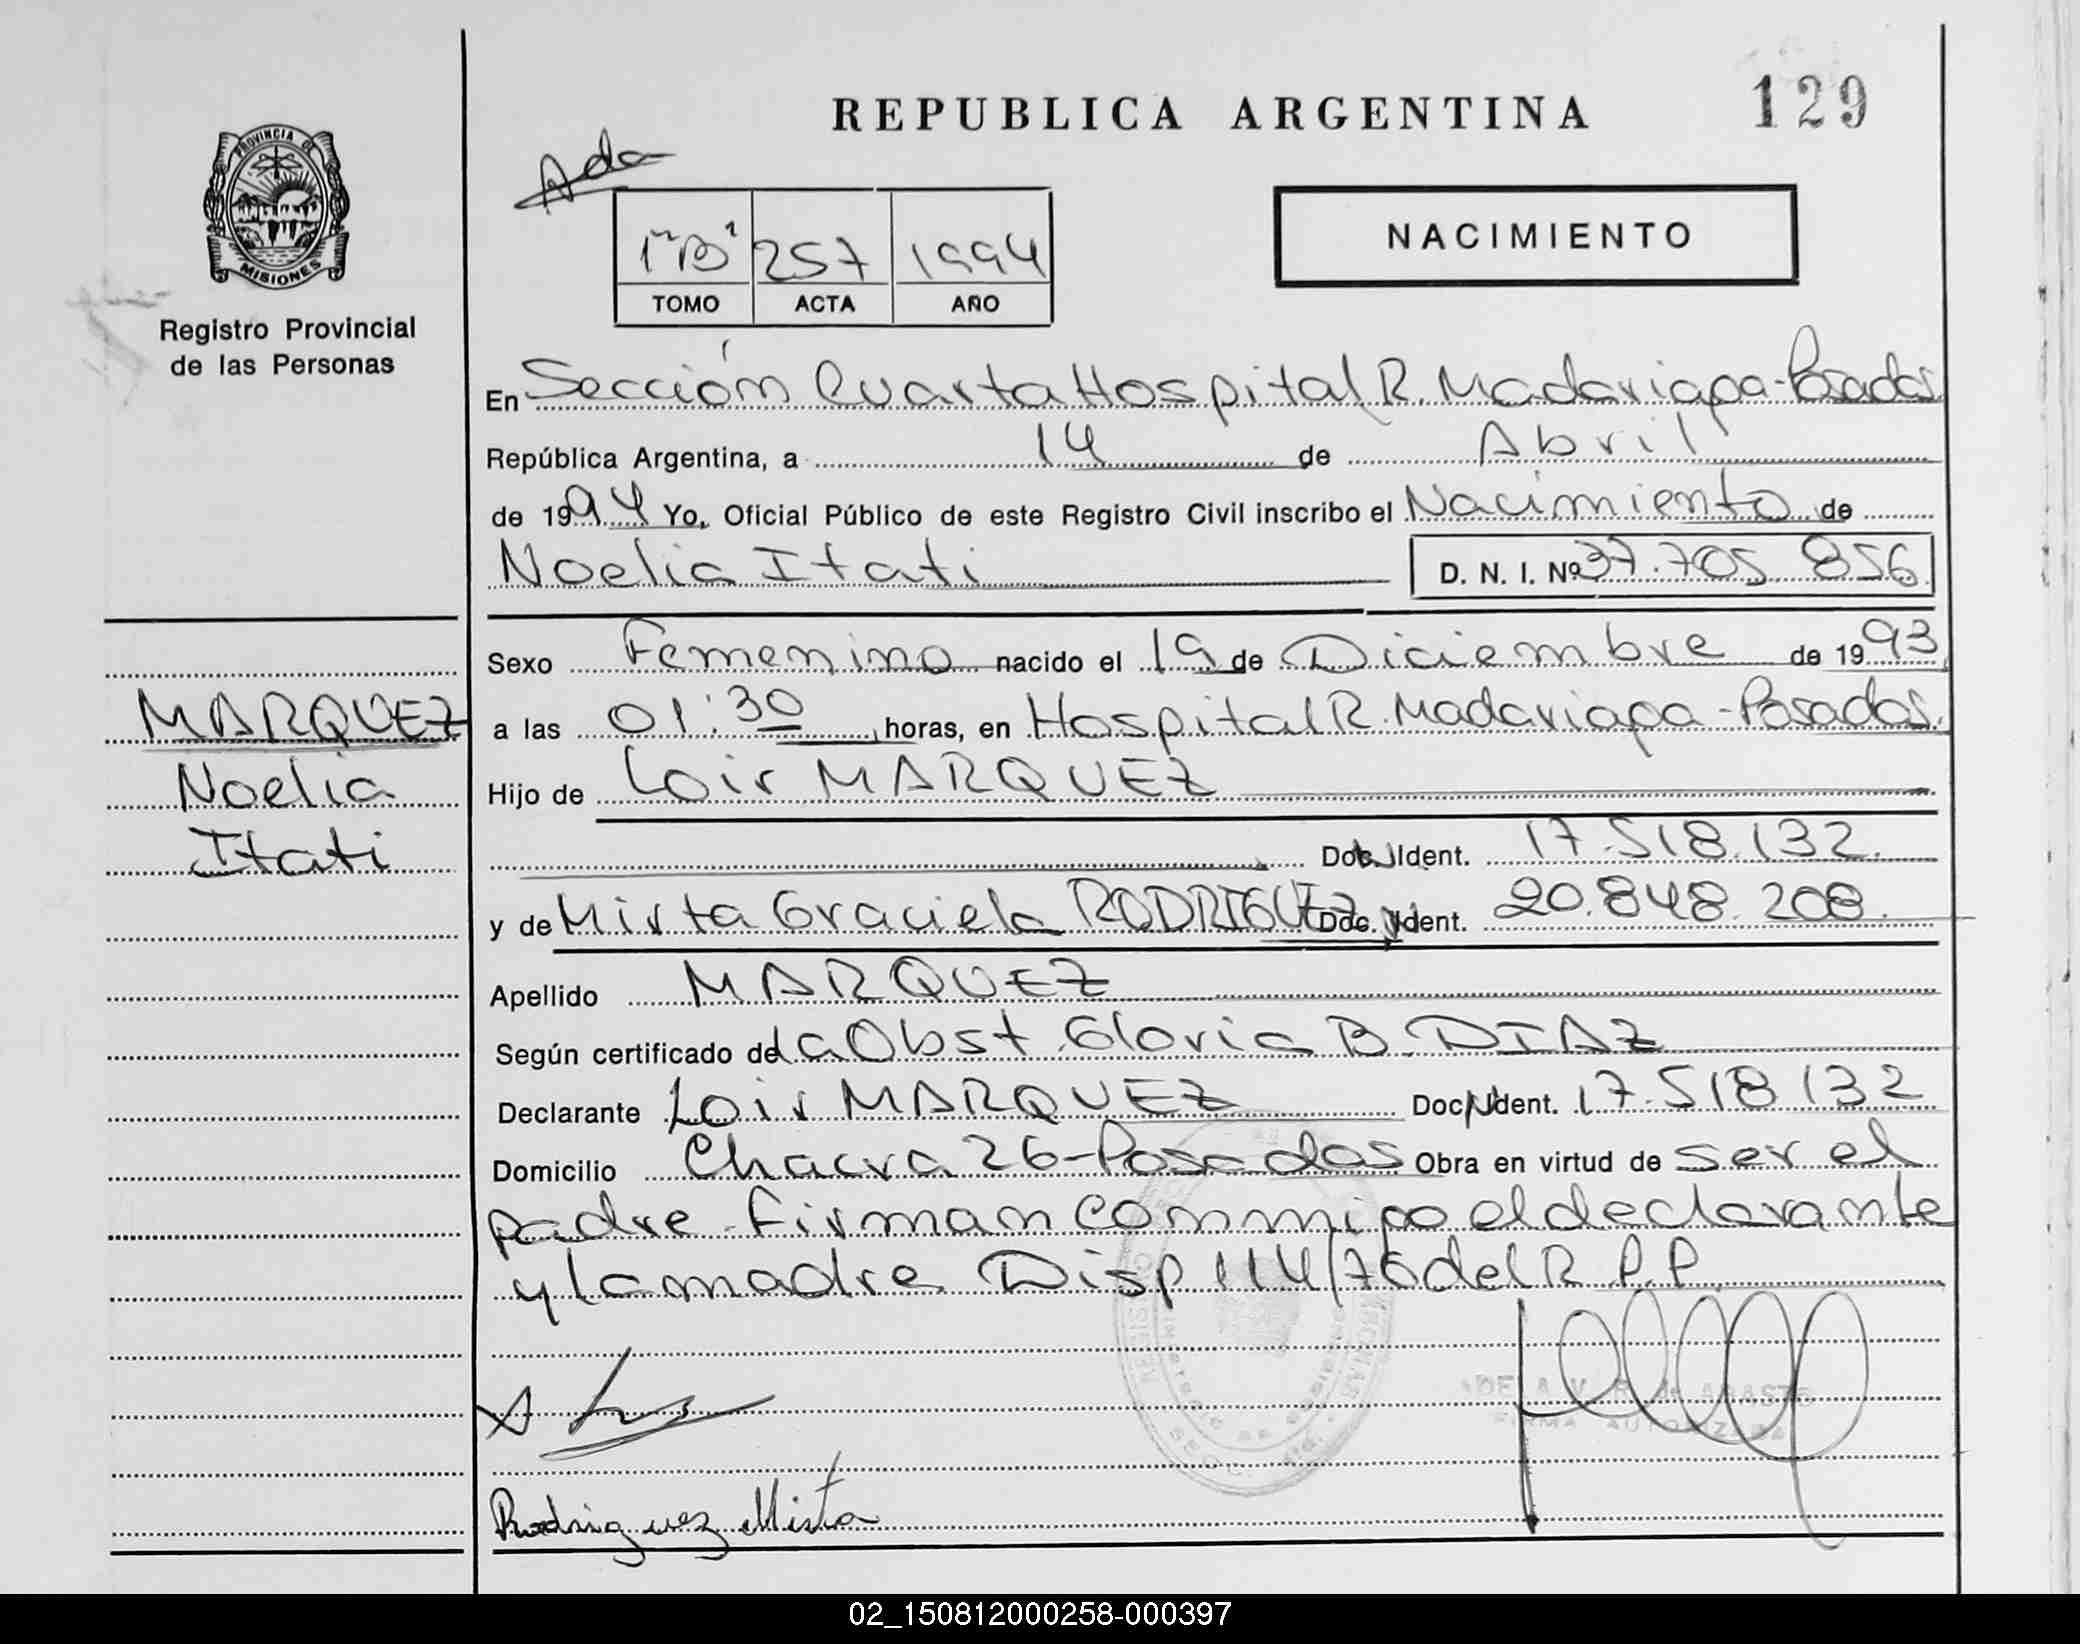 REPUBLICA ARGENTINA
129
Ada
1º"B" 257 1994
TOMO ACTA AÑO
NACIMIENTO
PROVINCIA DE
MISIONES
Registro Provincial
de las Personas
En Sección Cuarta Hospital R. Madariaga-Posadas
República Argentina, a 14 de Abril
de 1994 Yo, Oficial Público de este Registro Civil inscribo el Nacimiento de
Noelia Itati D. N. I. Nº 37.705.856
Sexo Femenino nacido el 19 de Diciembre de 1993
MARQUEZ
Noelia
Itati
a las 01:30 horas, en Hospital R. Madariaga-Posadas.
Hijo de Loir MARQUEZ
Doc. Ident. 17.518.132.
y de Mirta Graciela RODRIGUEZ Doc. Ident. 20.848.208.
Apellido MARQUEZ
Según certificado de la Obst. Gloria B. DIAZ
Declarante Loir MARQUEZ Doc. Ident. 17.518.132
Domicilio Chacra 26-Posadas Obra en virtud de ser el
padre. Firman conmigo el declarante
y la madre. Disp 114/76 del R.P.P.
FIRMA AUTORIZADA
Rodriguez Mirta
02_150812000258-000397